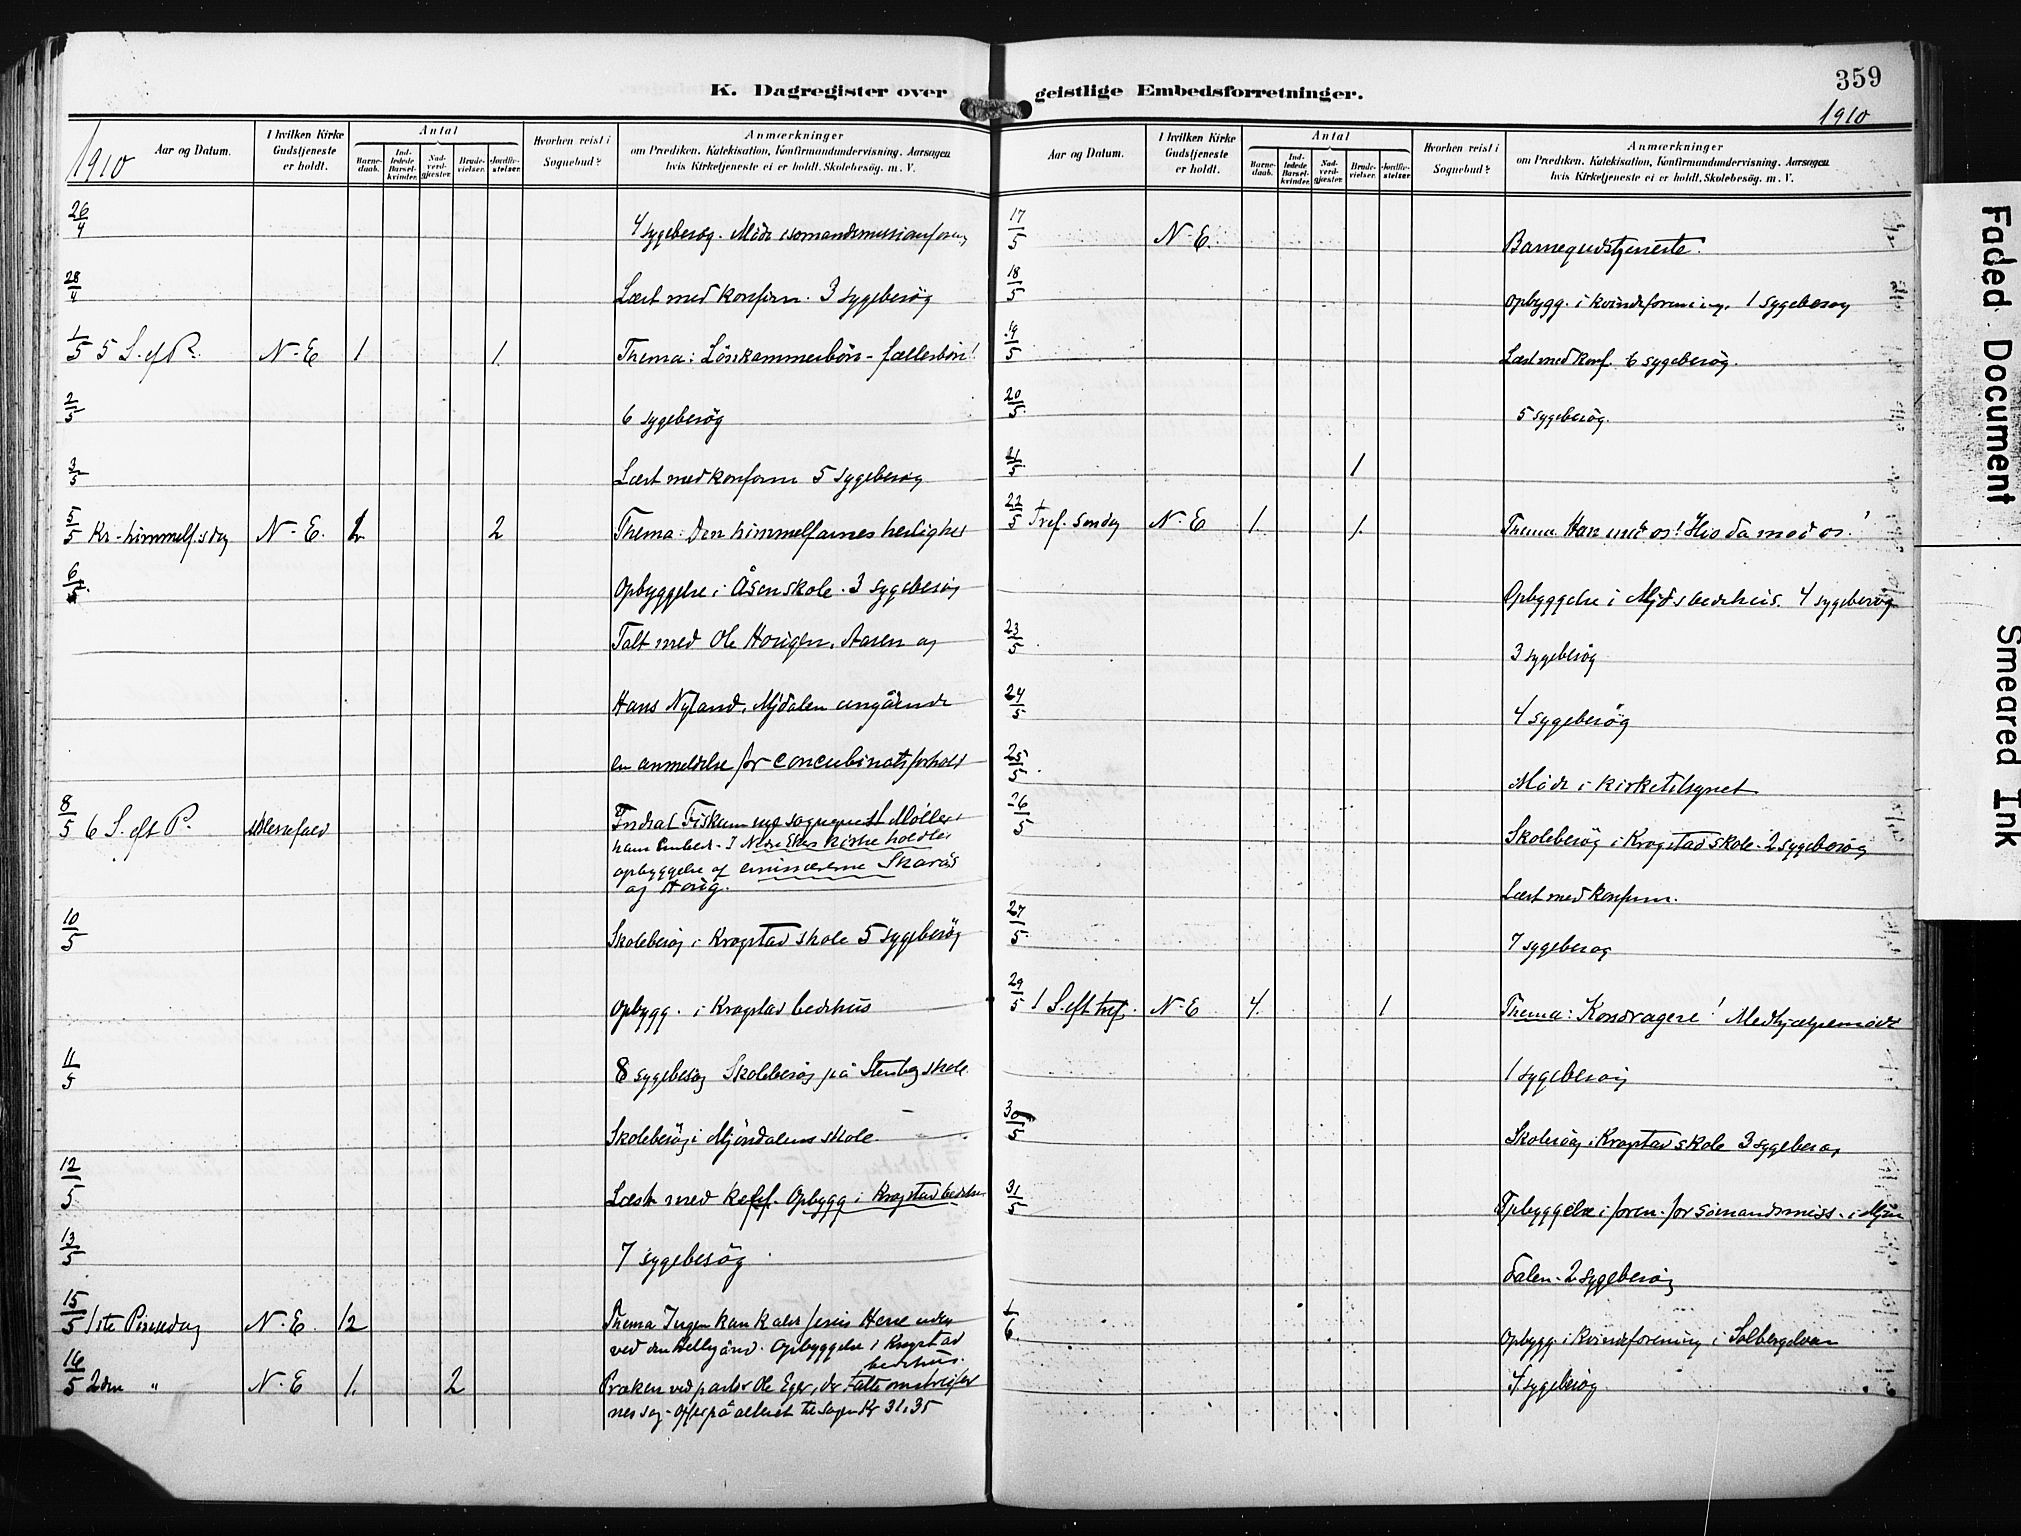 K. Dagregister over geistlige Embedsforretninger.
359
1910
1910
Aar og Datum.
I hvilken Kirke Gudstjeneste er holdt.
Antal
Barnedaab.
Indledede Barselkvinder.
Nadverdgjester.
Brudevielser.
Jordfæstelser.
Hvorhen reist i Sognebud?
Anmærkninger
om Prædiken, Katekisation, Konfirmandundervisning, Aarsagen
hvis Kirketjeneste ei er holdt, Skolebesög. m. V.
26/4 4 sygebesøg. Møde i sømandsmissionforen
28/4 Læst med konfirm. 3 sygebesøg
1/5 5 S. ef P. N-E 1 1. Thema: Lönkammerbön - fællesbön!
2/5 6 sygebesøg
3/5 Læst med konfirm 5 sygebesøg
5/5 Kr-himmelf.sdag N-E. 2 Thema: Den himmelfarnes herlighet
6/5 Opbyggelse i Åsen skole. 3 sygebesøg
Talt med Ole Horgen, Aasen og
Hans Nyland, Mjdalen angående
en anmeldelse for concubinatsforhold
8/5 6 S. eft P.
hans Embed - I Nedre Ekers kirke holdtes
opbyggelse af emissærerne Skarås
og Honig.
10/5 Skolebesøg i Krogstad skole 5 sygebesøg
Opbygg. i Krogstad bedehus
11/5 8 sygebesøg Skolebesøg på Stenbg skole
Skolebesøg i Mjöndalens skole.
12/5 Læst med Konf. Opbygg i Krogstad bedehus
13/5 7 sygebesøg
15/5 1ste Pinsedag N-E. 12 Thema Ingen kan kalde Jesus Herre uden
ved den Helligånd. Opbyggelse i Krogstad
bedehus.
16/5 2den " N-E 1. 2 Præken ved pastor Ole Eger, de
nes sag - Offer på alteret til sagen Kr 31.35
Aar og Datum.
I hvilken Kirke Gudstjeneste er holdt.
Antal
Barnedaab.
Indledede Barselkvinder.
Nadverdgjester.
Brudevielser.
Jordfæstelser.
Hvorhen reist i Sognebud?
Anmærkninger
om Prædiken, Katekisation, Konfirmandundervisning, Aarsagen
hvis Kirketjeneste ei er holdt, Skolebesög. m. V.
17/5 N-E. Barnegudstjeneste.
18/5 Opbygg. i kvindeforening, 1 sygebesøg
19/5 Læst med konf. 6 sygebesøg.
20/5 5 sygebesøg.
21/5 1
22/5 Tref. søndag N-E 1. 1. Thema Han med os!
Opbyggelse i Mjds bedehus. 4 sygebesøg
23/5 3 sygebesøg
24/5 4 sygebesøg
25/5 Møde i kirketilsynet
26/5 Skolebesøg i Krogstad skole. 2 sygebesøg
Læst med konfirm.
27/5 7 sygebesøg
29/5 1 S. eft tref. N-E 4. 1 Thema: Korsdragere! Medhjælpermöde
1 sygebesøg
30/5 Skolesøg i Krogstad skole 3 sygebesøg
31/5 Opbyggelse i foren. for sömandsmiss. i Mjön
dalen. 2 sygebesøg
1/6 Opbygg. i kvindeforening i Solbergelven
4 sygebesøg
Faded Document
Smeared Ink